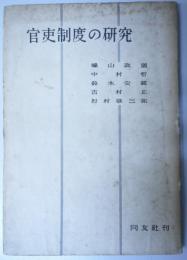 官吏制度の研究
蠟山政道
中村哲
鈴木安蔵
吉村正
杉村章三郎
同友社刊